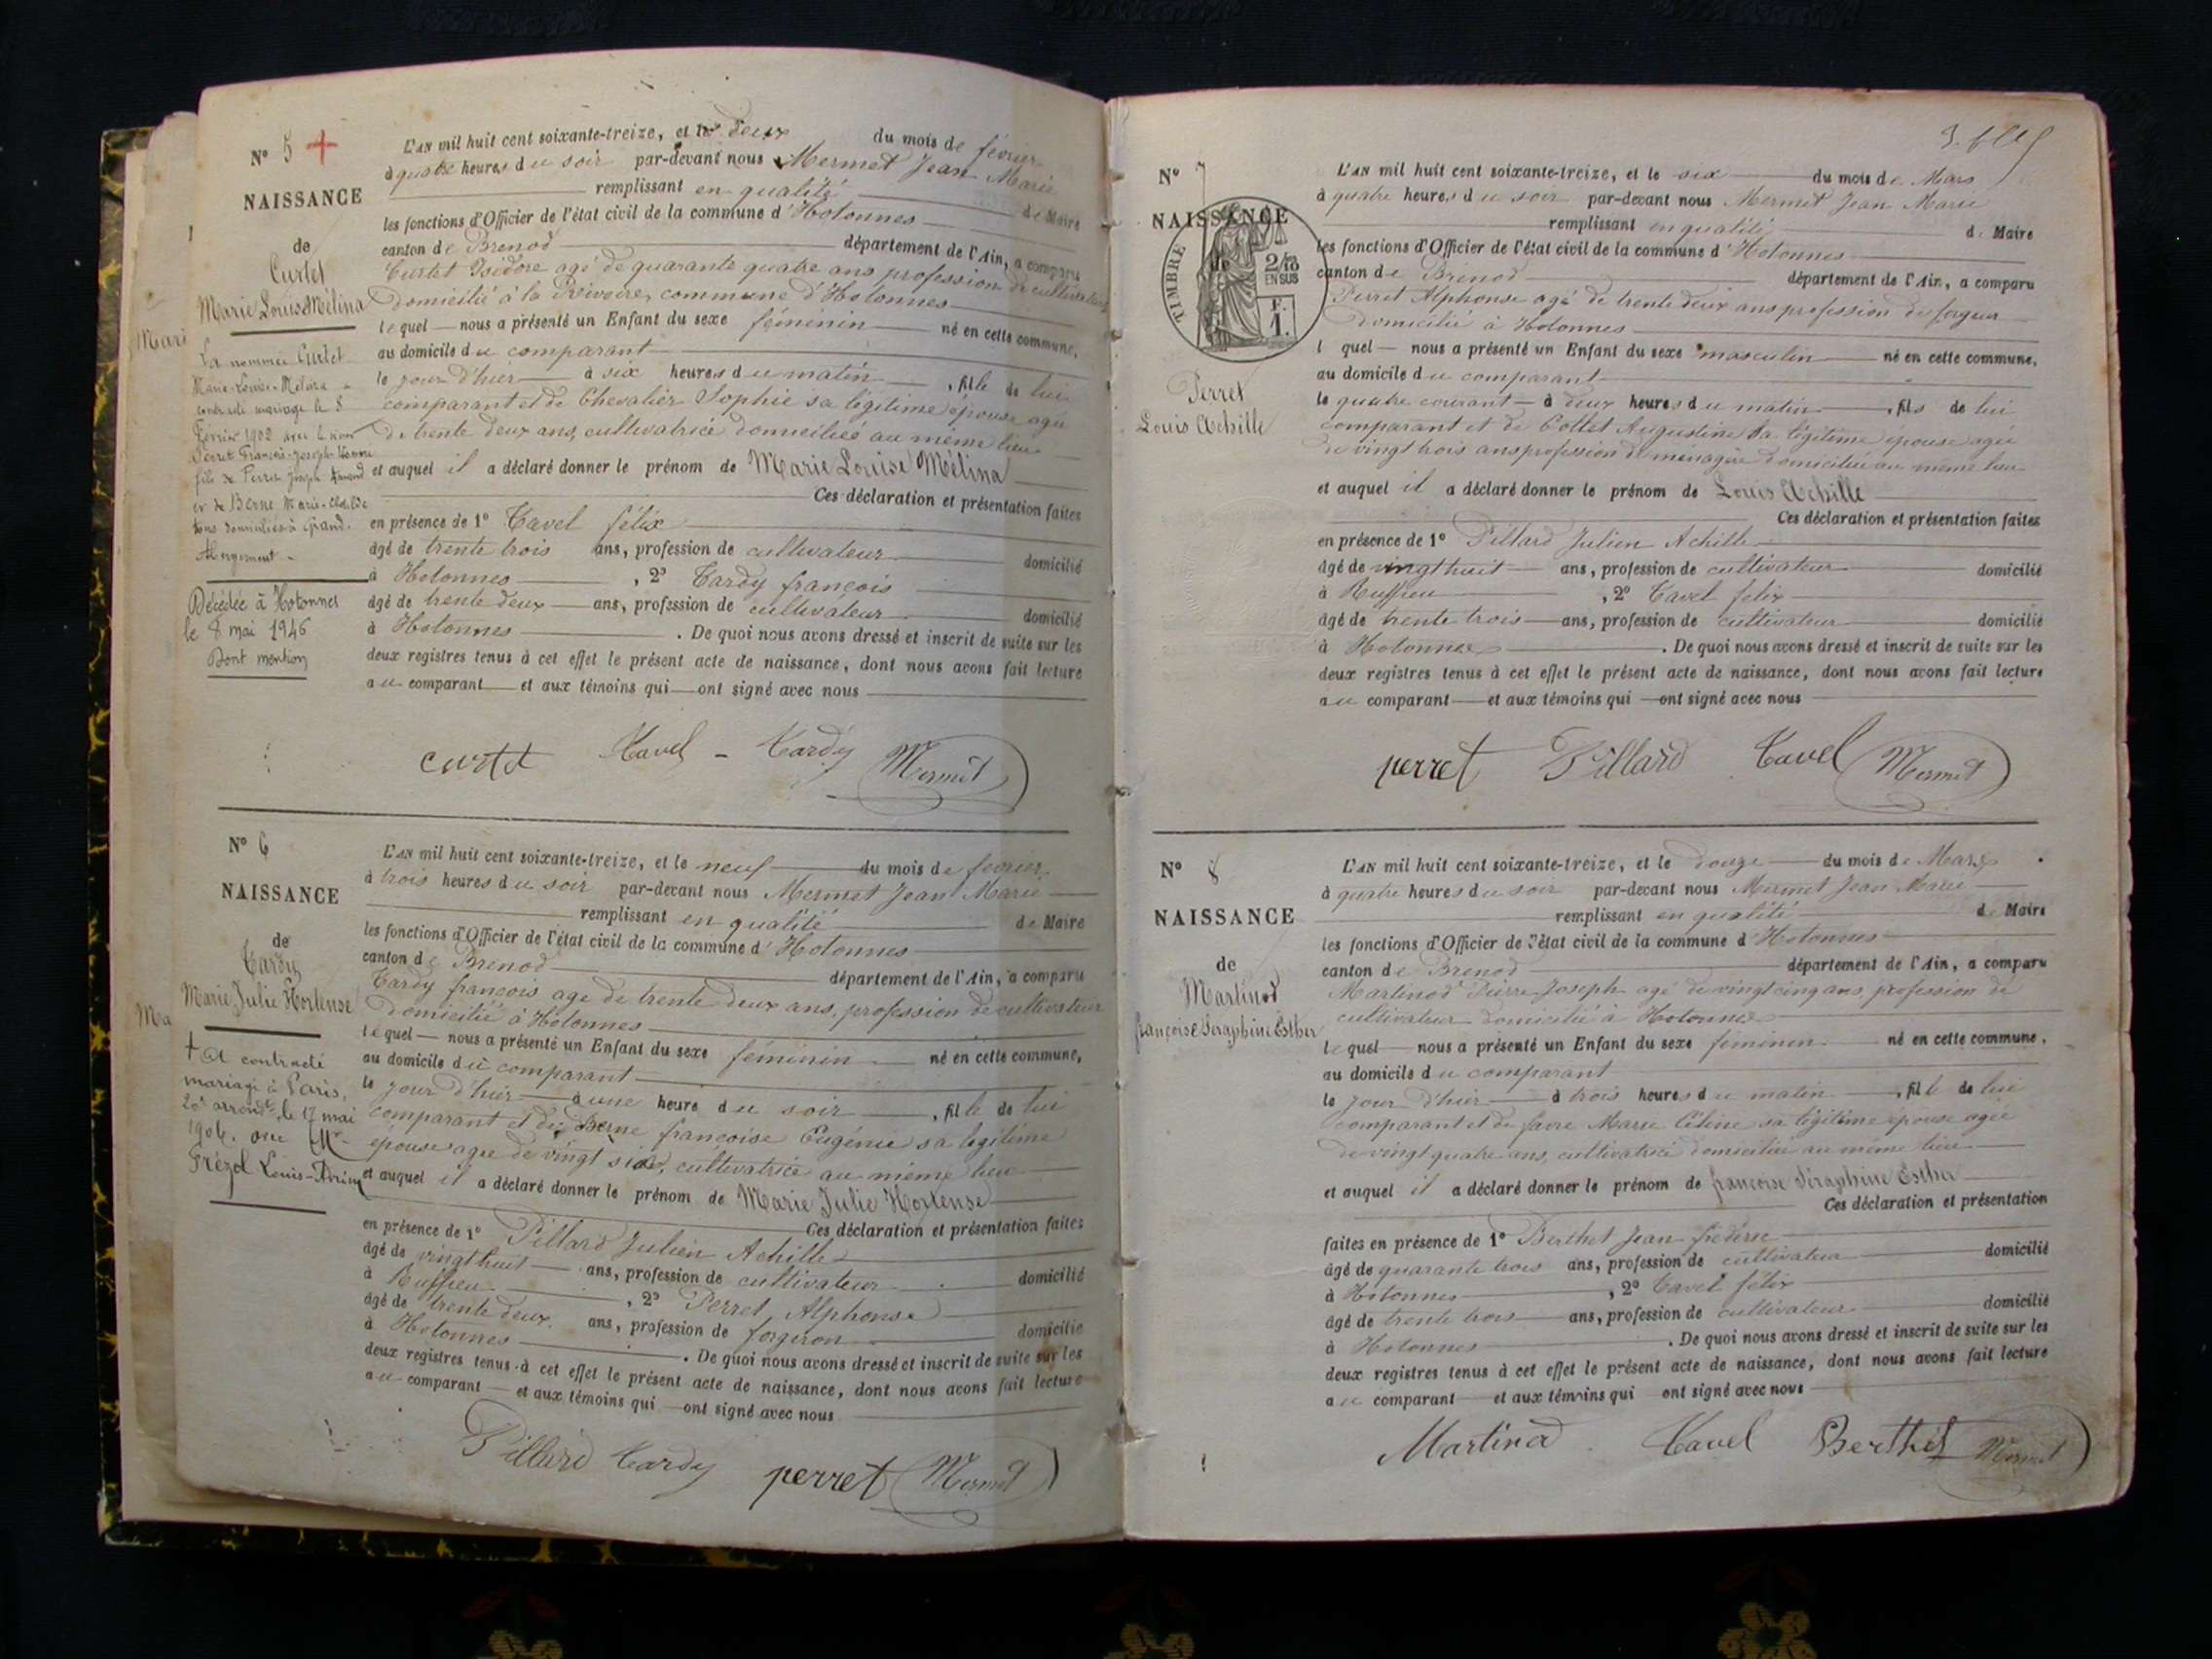 N° 5 +
NAISSANCE
de
Curtet
Marie Louise Mélina
La nommée Curtet
Marie-Louise-Mélina a
contracté mariage le 8
Février 1902 avec le nommé
Perret François-Joseph
fils de Perret Joseph Armand
et de Berne Marie-Clotilde
tous domiciliés à Grand-
Abergement -
Décédée à Hotonnes
le 8 mai 1946
Dont mention
L'AN mil huit cent soixante-treize, et le deux du mois de février
à quatre heures du soir par-devant nous Mermet Jean Marie
remplissant en qualité de Maire
les fonctions d'Officier de l'état civil de la commune d'Hotonnes
canton de Brenod département de l'Ain, a comparu
Curtet Isidore agé de quarante quatre ans, profession de cultivateur
Domicilié à la Rivoire, commune d'Hotonnes
lequel nous a présenté un Enfant du sexe féminin né en cette commune,
au domicile du comparant
le jour d'hier à six heures du matin, fille de lui
comparant et de Chevalier Sophie sa légitime épouse agée
de trente deux ans, cultivatrice domiciliée au même lieu
et auquel il a déclaré donner le prénom de Marie Louise Mélina
Ces déclaration et présentation faites
en présence de 1° Tavel félix
âgé de trente trois ans, profession de cultivateur domicilié
à Hotonnes, 2° Tardy françois
âgé de trente deux ans, profession de cultivateur domicilié
à Hotonnes. De quoi nous avons dressé et inscrit de suite sur les
deux registres tenus à cet effet le présent acte de naissance, dont nous avons fait lecture
au comparant et aux témoins qui ont signé avec nous
curtet Tavel - Tardy Mermet
N° 6
NAISSANCE
de
Tardy
Marie Julie Hortense
+ A contracté
mariage à Paris,
20e arrondt le 17 mai
1906. avec Mr
Frézol Louis-Adrien
L'AN mil huit cent soixante-treize, et le neuf du mois de février
à trois heures du soir par-devant nous Mermet Jean Marie
remplissant en qualité de Maire
les fonctions d'Officier de l'état civil de la commune d'Hotonnes
canton de Brenod département de l'Ain, a comparu
Tardy françois age de trente deux ans, profession de cultivateur
Domicilié à Hotonnes
lequel nous a présenté un Enfant du sexe féminin né en cette commune,
au domicile du comparant
le jour d'hier à une heure du soir, fille de lui
comparant et de Berne françoise Eugénie sa légitime
épouse agée de vingt six, cultivatrice au même lieu
et auquel il a déclaré donner le prénom de Marie Julie Hortense
Ces déclaration et présentation faites
en présence de 1° Pillard Julien Achille
âgé de vingt huit ans, profession de cultivateur domicilié
à Ruffieu, 2° Perret Alphonse
âgé de trente deux ans, profession de forgeron domicilié
à Hotonnes. De quoi nous avons dressé et inscrit de suite sur les
deux registres tenus à cet effet le présent acte de naissance, dont nous avons fait lecture
au comparant et aux témoins qui ont signé avec nous
Pillard Tardy perret Mermet
N° 7
NAISSANCE
de
TIMBRE
2/10
EN SUS
F.
1.
Perret
Louis Achille
L'AN mil huit cent soixante-treize, et le six du mois de Mars
à quatre heures du soir par-devant nous Mermet Jean Marie
remplissant en qualité de Maire
les fonctions d'Officier de l'état civil de la commune d'Hotonnes
canton de Brenod département de l'Ain, a comparu
Perret Alphonse agé de trente deux ans profession de forgeur
domicilié à Hotonnes
l quel nous a présenté un Enfant du sexe masculin né en cette commune,
au domicile du comparant
le quatre courant à deux heures du matin, fils de lui
comparant et de Collet Augustine sa légitime épouse agée
de vingt trois ans profession de menagère domiciliée au même lieu
et auquel il a déclaré donner le prénom de Louis Achille
Ces déclaration et présentation faites
en présence de 1° Pillard Julien Achille
âgé de vingt huit ans, profession de cultivateur domicilié
à Ruffieu, 2° Tavel felix
âgé de trente trois ans, profession de cultivateur domicilié
à Hotonnes. De quoi nous avons dressé et inscrit de suite sur les
deux registres tenus à cet effet le présent acte de naissance, dont nous avons fait lecture
au comparant et aux témoins qui ont signé avec nous
perret Pillard Tavel Mermet
N° 8
NAISSANCE
de
Martinod
françoise Séraphine Esther
L'AN mil huit cent soixante-treize, et le douze du mois de Mars
à quatre heures du soir par-devant nous Mermet Jean Marie
remplissant en qualité de Maire
les fonctions d'Officier de l'état civil de la commune d'Hotonnes
canton de Brenod département de l'Ain, a comparu
Martinod Pierre Joseph agé de vingt cinq ans, profession de
cultivateur domicilié à Hotonnes
lequel nous a présenté un Enfant du sexe féminin né en cette commune,
au domicile du comparant
le jour d'hier à trois heures du matin, fille de lui
comparant et de favre Marie Céline sa légitime épouse agée
de vingt quatre ans, cultivatrice domiciliée au même lieu
et auquel il a déclaré donner le prénom de françoise Séraphine Esther
Ces déclaration et présentation
faites en présence de 1° Berthet Jean fréderic
âgé de quarante trois ans, profession de cultivateur domicilié
à Hotonnes, 2° Tavel félix
âgé de trente trois ans, profession de cultivateur domicilié
à Hotonnes. De quoi nous avons dressé et inscrit de suite sur les
deux registres tenus à cet effet le présent acte de naissance, dont nous avons fait lecture
au comparant et aux témoins qui ont signé avec nous
Martinod Tavel Berthet Mermet